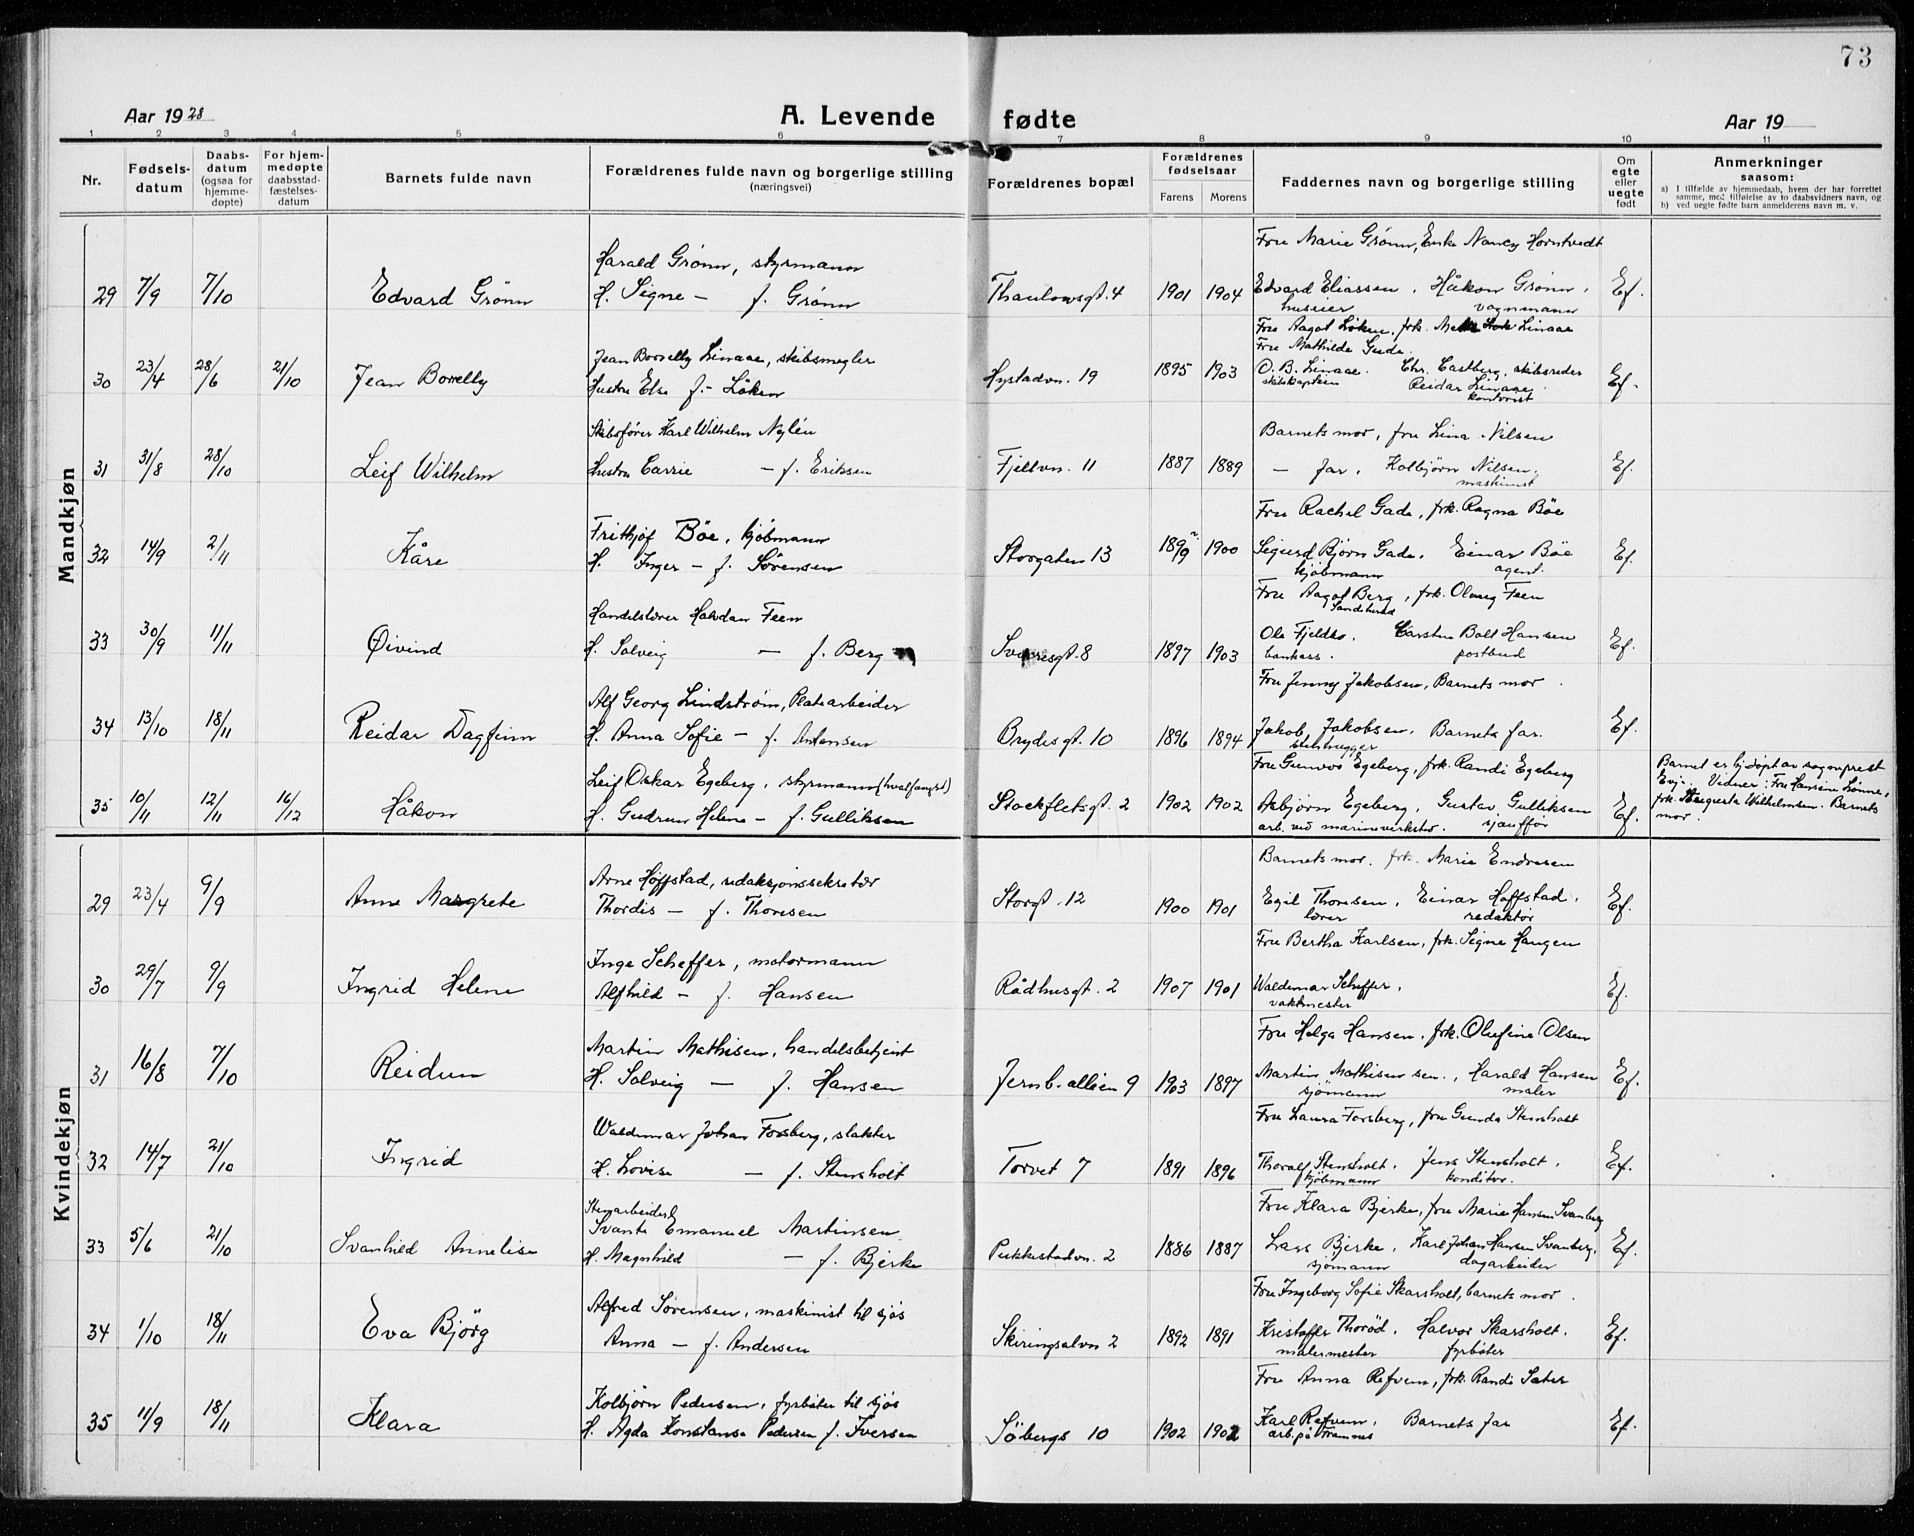 73
Aar 1928
A. Levende fødte
Aar 19
1 2 3 4 5 6 7 8 9 10 11
Nr.
Fødsels-
datum
Daabs-
datum
(ogsaa for
hjemme-
døpte)
For hjem-
medøpte
daabsstad-
fæstelses-
datum
Barnets fulde navn
Forældrenes fulde navn og borgerlige stilling
(næringsvei)
Forældrenes bopæl
Forældrenes
fødselsaar
Farens Morens
Faddernes navn og borgerlige stilling
Om
egte
eller
uegte
født
Anmerkninger
saasom:
a) I tilfælde av hjemmedaab, hvem der har forrettet
samme, med tilføielse av to daabsvidners navn, og
b) ved uegte fødte barn anmelderens navn m. v.
Mandkjøn
Fru Marie Grønn, Enke Nancy Horntvedt
Harald Grønn, styrmann
29 7/9 7/10 Edvard Grønn H. Signe — f. Grønn Thaulowsgt. 4 1901 1904 Edvard Eliassen, Håkon Grønn, Ef.
huseier vognmann
Fru Aagot Løken, frk. Linaae
Fru Mathilde Gude.
Jean Borrelly Linaae, skibsmegler
30 23/4 28/6 21/10 Jean Borrelly Hustru Else f. - Løken Hystadvn. 19 1895 1903 O. B. Linaae. Chr. Castberg, skibsreder Ef.
skibskaptein Reidar Linaae,
kontorist
Skibsfører Karl Wilhelm Nylén Barnets mor, fru Lina Nilsen
31 31/8 28/10 Leif Wilhelm Hustru Carrie — f. Eriksen Fjellvn. 11 1887 1889 — far, Kolbjørn Nilsen, Ef.
maskinist
Fru Rachel Gade, frk. Ragna Böe
Frithjof Böe, kjøbmann
32 14/9 2/11 Kåre H. Inger — f. Sørensen Storgaten 13 1899 1900 Sigurd Bjørn Gade. Einar Böe Ef.
kjøbmann agent.
Fru Aagot Berg, frk. Olaug Feen
Sandefjord
Handelslærer Halvdan Feen
33 30/9 11/11 Øivind H. Solveig — f. Berg Sverresgt. 8 1897 1903 Ole Fjeldbo. Carsten Bolt Hansen Ef.
bankass. postbud
Fru Jenny Jakobsen, Barnets mor.
Alf Georg Lindstrøm, Platearbeider
34 13/10 18/11 Reidar Dagfinn H. Anna Sofie — f. Antonsen Brydesgt. 10 1896 1894 Jakob Jakobsen. Barnets far. Ef.
stenhugger
Fru Gunvor Egeberg, frk. Randi Egeberg
Leif Oskar Egeberg, styrmann (hvalfangst)
35 10/11 12/11 16/12 Håkon H. Gudrun Helene — f. Gulliksen Stockfletsgt. 2 1902 1902 Asbjørn Egeberg, Gustav Gulliksen Ef.
arb. ved marineverksted. sjauffør
Barnet er hj.døpt av sogneprest
Evje. Vidner: Fru Hansine Lønne,
frk. Augusta Wilhelmsen. Barnets
mor.
Kvindekjøn
Barnets mor. frk. Marie Endresen
Arne Hoffstad, redaksjonssekretær
29 23/4 9/9 Anne Margrete Thordis — f. Thoresen Storgt. 12 1900 1901 Egil Thoresen, Einar Hoffstad, Ef.
lærer redaktør
Fru Bertha Karlsen, frk. Signe Haugen
Inge Scheffer, motormann
30 29/7 9/9 Ingrid Helene Alfhild — f. Hansen Rådhusgt. 2 1907 1901 Waldemar Scheffer, Ef.
vaktmester
Fru Helga Hansen, frk. Olufine Olsen
Martin Mathisen, handelsbetjent
31 16/8 7/10 Reidun H. Solveig — f. Hansen Jernb. alléen 9 1903 1897 Martin Mathisen sen., Harald Hansen Ef.
sjømann maler
Fru Laura Forsberg, fru Gunda Stensholt
Waldemar Johan Forsberg, slakter
32 14/7 21/10 Ingrid H. Lovise — f. Stensholt Torvet 7 1891 1896 Thoralf Stensholt. Jens Stensholt, Ef.
kjøbmann konditor.
Fru Klara Bjerke, fru Marie Hansen Svanberg
Stenarbeider
Svante Emanuel Martinsen,
33 5/6 21/10 Svanhild Annelise H. Magnhild — f. Bjerke Pukkestadvn. 2 1886 1887 Lars Bjerke, Karl Johan Hansen Svanberg, Ef.
sjømann dagarbeider
Fru Ingeborg Sofie Skarsholt, barnets mor.
Alfred Sørensen, maskinist til sjøs
34 1/10 18/11 Eva Björg Anna — f. Andersen Skiringsalvn 2 1892 1891 Kristoffer Thorød, Halvor Skarsholt, Ef.
malermester fyrbøter
Fru Anna Refvem, frk. Randi Sæter
Kolbjørn Pedersen, fyrbøter til sjøs
35 11/9 18/11 Klara H. Agda Konstanse Pedersen f. Iversen Söbergs 10 1902 1902 Karl Refvem, Barnets far Ef.
arb. på Framnes